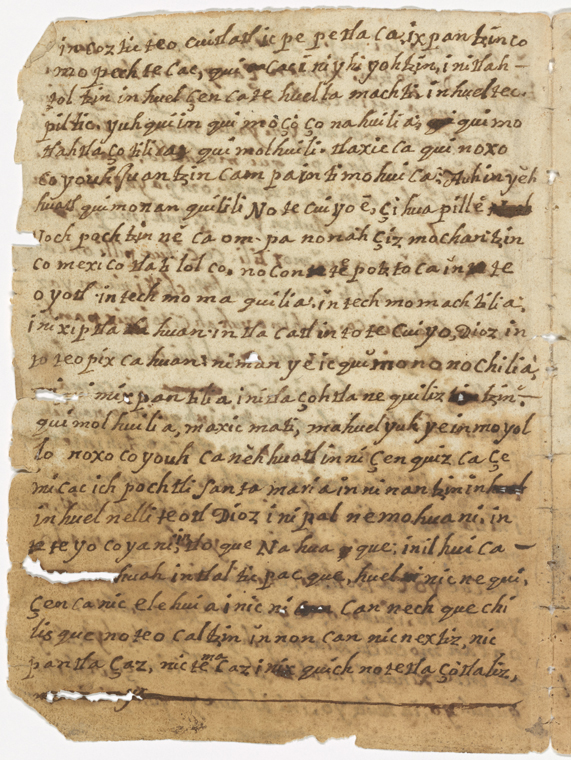 in coztic teo cuitlatl ic pe petlaca, ixpantzinco
mo pech tecac, quicac in iyhiyohtzin, in itlah-
tol tzin in huel çenca tehuellamachti, in huel tec-
piltic, yuhquiin qui moçoçonahuilia, quimo
tlahtlaçotilia, qui molhuili. tlaxicca quinoxo
coyouh Juantzin campa in timohuica: Auh in yeh
huatl quimonan quilili Notecuiyoé, çihuapillé
Noch pochtzinné ca ompa nonahçiz mochantzin
co mexico tlatilolco, nocon tepotztoca in te
oyotl in techmomaquilia, in techmomachtilia
in ixiptlahuan in tlacatl in totecuiyo, Dioz in
to teopixcahuan: niman yé ic quimononochilia,
mixpantilia in itlaçohtlanequiliztzin:-
quimolhuilia, maxicmati, mahuel yuh ye in moyol
lo noxocoyouh ca nehhuatl in niçenquizcaçe
micac ichpochtli Santa maria in ninantzin in
in huel nelli teotl Dioz in ipalnemohuani, in
teyocoyani, in tloque Nahuaque, in ilhuica-
huah in tlalticpacque, huel nicnequi,
çenca nic elehuia inic ni can nechquechi
lis que noteocaltzin in noncan nicnextiz, nic
pantlaçaz, nictemacaz in ixquich notetlaçòtlaliz,